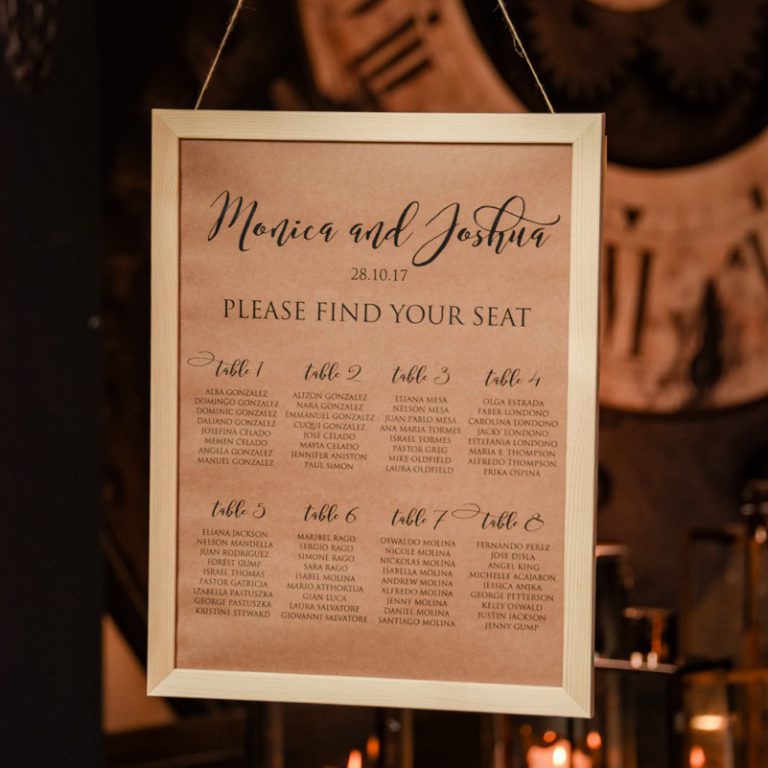 Monica and Joshua
28.10.17
PLEASE FIND YOUR SEAT
table 1
ALBA GONZALEZ
DOMINGO GONZALEZ
DOMINIC GONZALEZ
DALIANO GONZALEZ
JOSEFINA CELADO
MEMEN CELADO
ANGELA GONZALEZ
MANUEL GONZALEZ
table 2
ALIZON GONZALEZ
NARA GONZALEZ
EMMANUEL GONZALEZ
CUQUI GONZALEZ
JOSE CELADO
MAYIA CELADO
JENNIFER ANISTON
PAUL SIMON
table 3
ELIANA MESA
NELSON MESA
JUAN PABLO MESA
ANA MARIA TORMES
ISRAEL TORMES
PASTOR GREG
MIKE OLDFIELD
LAURA OLDFIELD
table 4
OLGA ESTRADA
FABER LONDONO
CAROLINA LONDONO
JACKY LONDONO
ESTEFANIA LONDONO
MARIA E THOMPSON
ALFREDO THOMPSON
ERIKA OSPINA
table 5
ELIANA JACKSON
NELSON MANDELLA
JUAN RODRIGUEZ
FOREST GUMP
ISRAEL THOMAS
PASTOR GATRICIA
IZABELLA PASTUSZKA
GEORGE PASTUSZKA
KRISTINE STEWARD
table 6
MARIBEL RAGO
SERGIO RAGO
SIMONE RAGO
SARA RAGO
ISABEL MOLINA
MARIO ATEHORTUA
GIAN LUCA
LAURA SALVATORE
GIOVANNI SALVATORE
table 7
OSWALDO MOLINA
NICOLE MOLINA
NICKOLAS MOLINA
ISABELLA MOLINA
ANDREW MOLINA
ALFREDO MOLINA
JENNY MOLINA
DANIEL MOLINA
SANTIAGO MOLINA
table 8
FERNANDO PEREZ
JOSE DISLA
ANGEL KING
MICHELLE ACAJABON
JESSICA ANIKA
GEORGE PETTERSON
KELLY OSWALD
JUSTIN JACKSON
JENNY GUMP